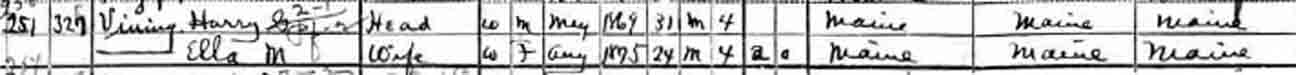 251 329 Vining Harry G Head W M May 1869 31 M 4 Maine Maine Maine
Ella M Wife W F Aug 1875 24 M 4 2 0 Maine Maine Maine